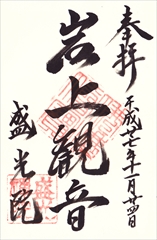 奉拝
平成廿七年十一月廿四日
岩上観音
盛光院